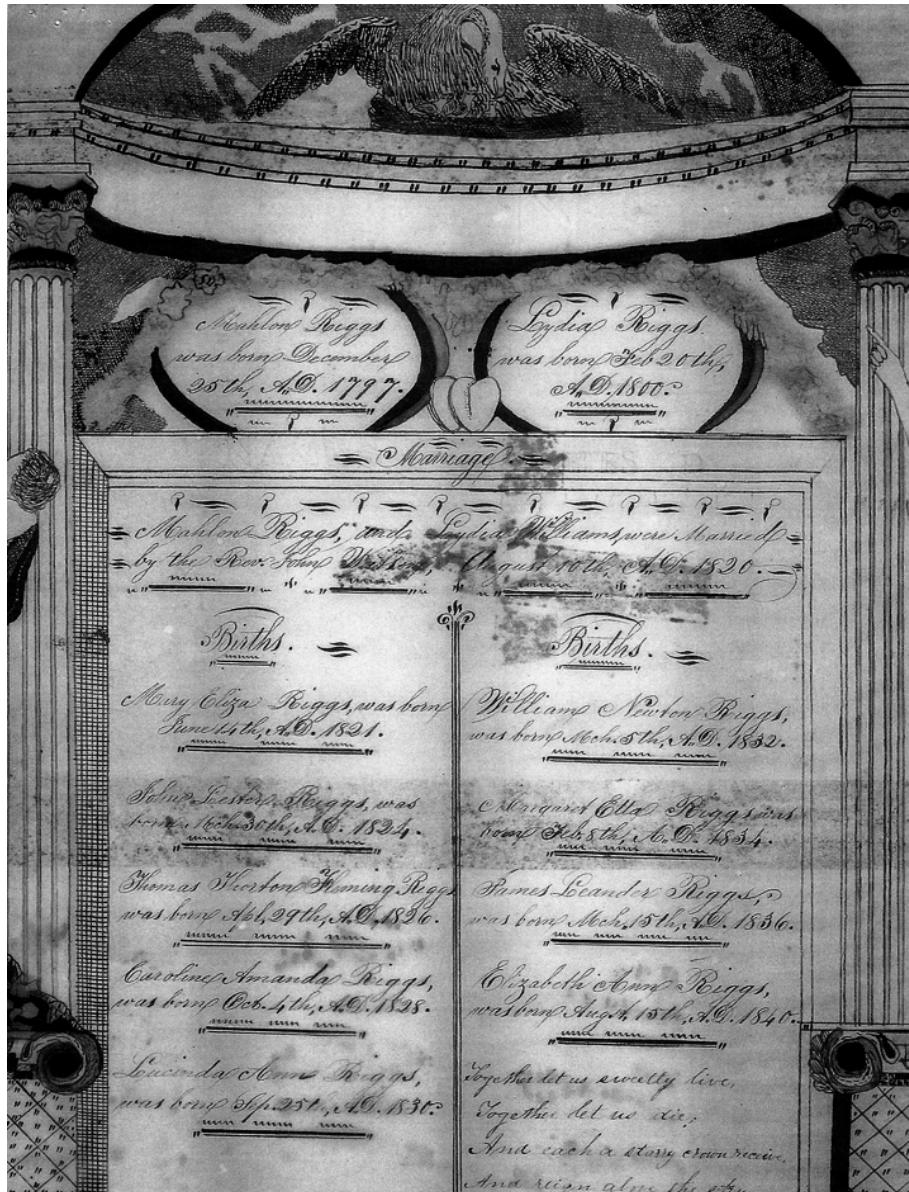 Mahlon Riggs
was born December
25th, A.D. 1797.
Lydia Riggs.
was born Feb 20th,
A.D. 1800.
Marriage.
Mahlon Riggs, and Lydia Williams, were Married
by the Rev. John August 10th, A.D. 1820.
Births.
Mary Eliza Riggs, was born
June 14th, A.D. 1821.
John Lester Riggs, was
born Mch. 30th, A.D. 1824.
Thomas Horton Fleming Riggs
was born Apl. 29th, A.D. 1826.
Caroline Amanda Riggs,
was born Oct. 4th, A.D. 1828.
Lucinda Ann Riggs,
was born Sep. 25th, A.D. 1830.
Births.
William Newton Riggs,
was born Mch. 5th, A.D. 1832.
Margaret Ella Riggs was
born Feb. 8th, A.D. 1834.
James Leander Riggs,
was born Mch. 15th, A.D. 1836.
Elizabeth Ann Riggs,
was born Augt. 15th, A.D. 1840.
Together let us sweetly live,
Together let us die;
And each a starry crown receive,
And reign